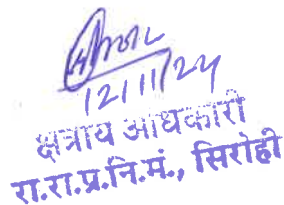 12/11/24
क्षत्रीय अधिकारी
रा.रा.प्र.नि.मं., सिरोही